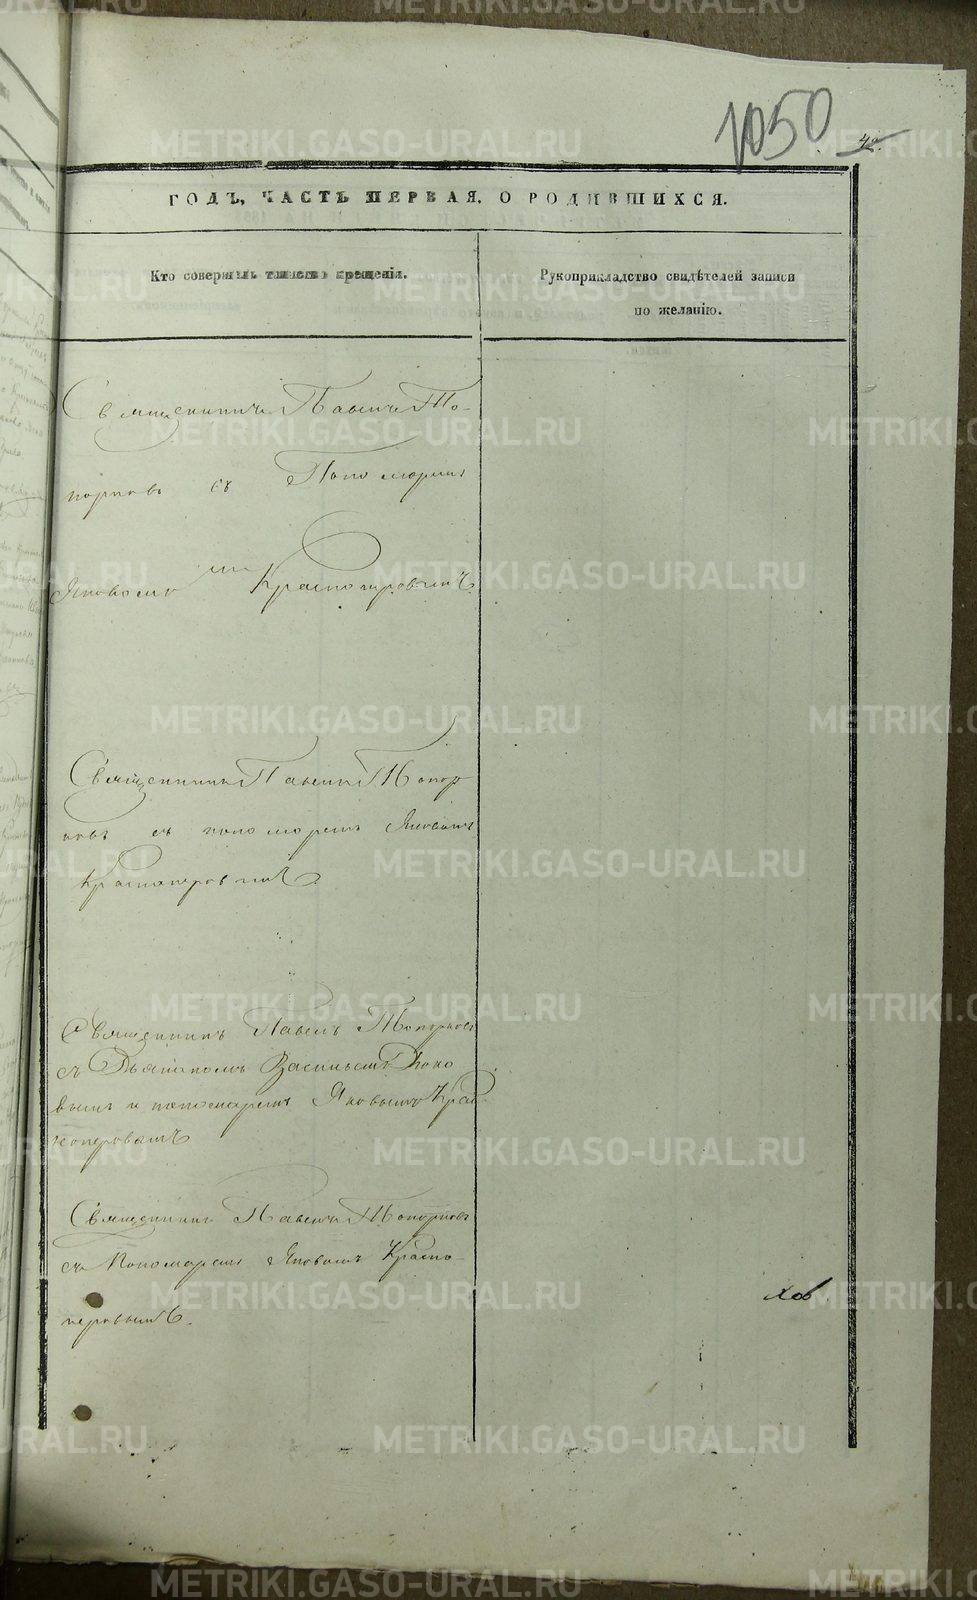 1050
ГОДЪ, ЧАСТЬ ПЕРВАЯ, О РОДИВШИХСЯ.
Кто совершалъ таинство крещенія.
Рукоприкладство свидѣтелей записи
по желанію.
Священникъ Павелъ То-
порковъ съ Пономаремъ
Яковомъ Красноперовымъ.
Священникъ Павелъ Топор
ковъ съ пономаремъ Яковомъ
Красноперовымъ.
Священникъ Павелъ Топорковъ
съ Діакономъ Васильемъ
и пономаремъ Яковомъ Крас
ноперовымъ
Священникъ Павелъ Топорковъ
съ Пономаремъ Яковомъ Красно-
перовымъ.
METRIKI.GASO-URAL.RU